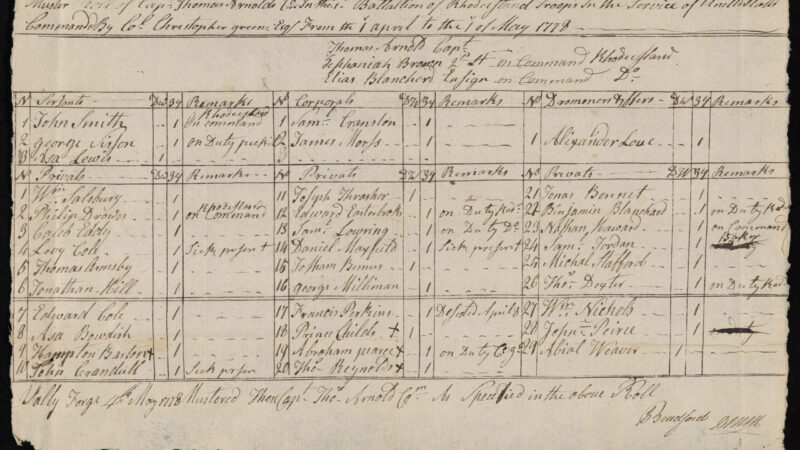 Muster Role of Capt Thomas Arnolds Co In the 1st Battalion of Rhodeisland Troops In the Service of United States
Command By Col. Christopher green Esqr From the 1 april to the 1 of May 1778
Thomas Arnold Capt
Zephaniah Brown 2d Lt on Command Rhodeisland
Elias Blanchert Ensign on Command Do
No Serjants Remarks No Corporals Remarks No Dromonon & fifers Remarks
1 John Smith 1 Rhodeisland on Command 1 Saml Cranston 1
2 george Sisson 1 on Duty 2 James Morss 1 1 Alexander Love 1
3 Asa Lewis 1
No Privats Remarks No Privats Remarks No Privats Remarks
1 Wm Salsbury 1 11 Joseph Thrasher 1 21 Jonas Bennet 1
2 Philip 1 Rhodeisland on Command 12 Edward 1 on Duty 22 Benjamin Blanchard 1 on Duty
3 Caleb Eddy 1 13 Saml Lowring 1 on Duty Do 23 Nathan Haward 1 on Command
4 Levy Cole 1 Sick present 14 Daniel Mayfield 1 Sick present 24 Saml Jordan 1 Baker
5 Thomas Ormsby 1 15 Jotham Bemus 1 25 Michal Stafford 1
6 Jonathan Hill 1 16 george Milliman 1 26 Thos Dexter 1 on Duty
7 Edward Cole 1 17 Francis Perkins 1 Deserted April 8 27 Wm Nichols 1
8 Asa Bowdish 1 18 Prince Childs + 1 28 John Peirce 1
9 Hampton Barton + 1 19 Abraham pearce + 1 on Duty 29 Abial Weaver 1
10 John Crandull 1 Sick presen 20 Thos Reynolds + 1
Vally Forge May 1778 Mustered Then Capt Thos Arnold Comy As Specified in the above Roll
Bradford